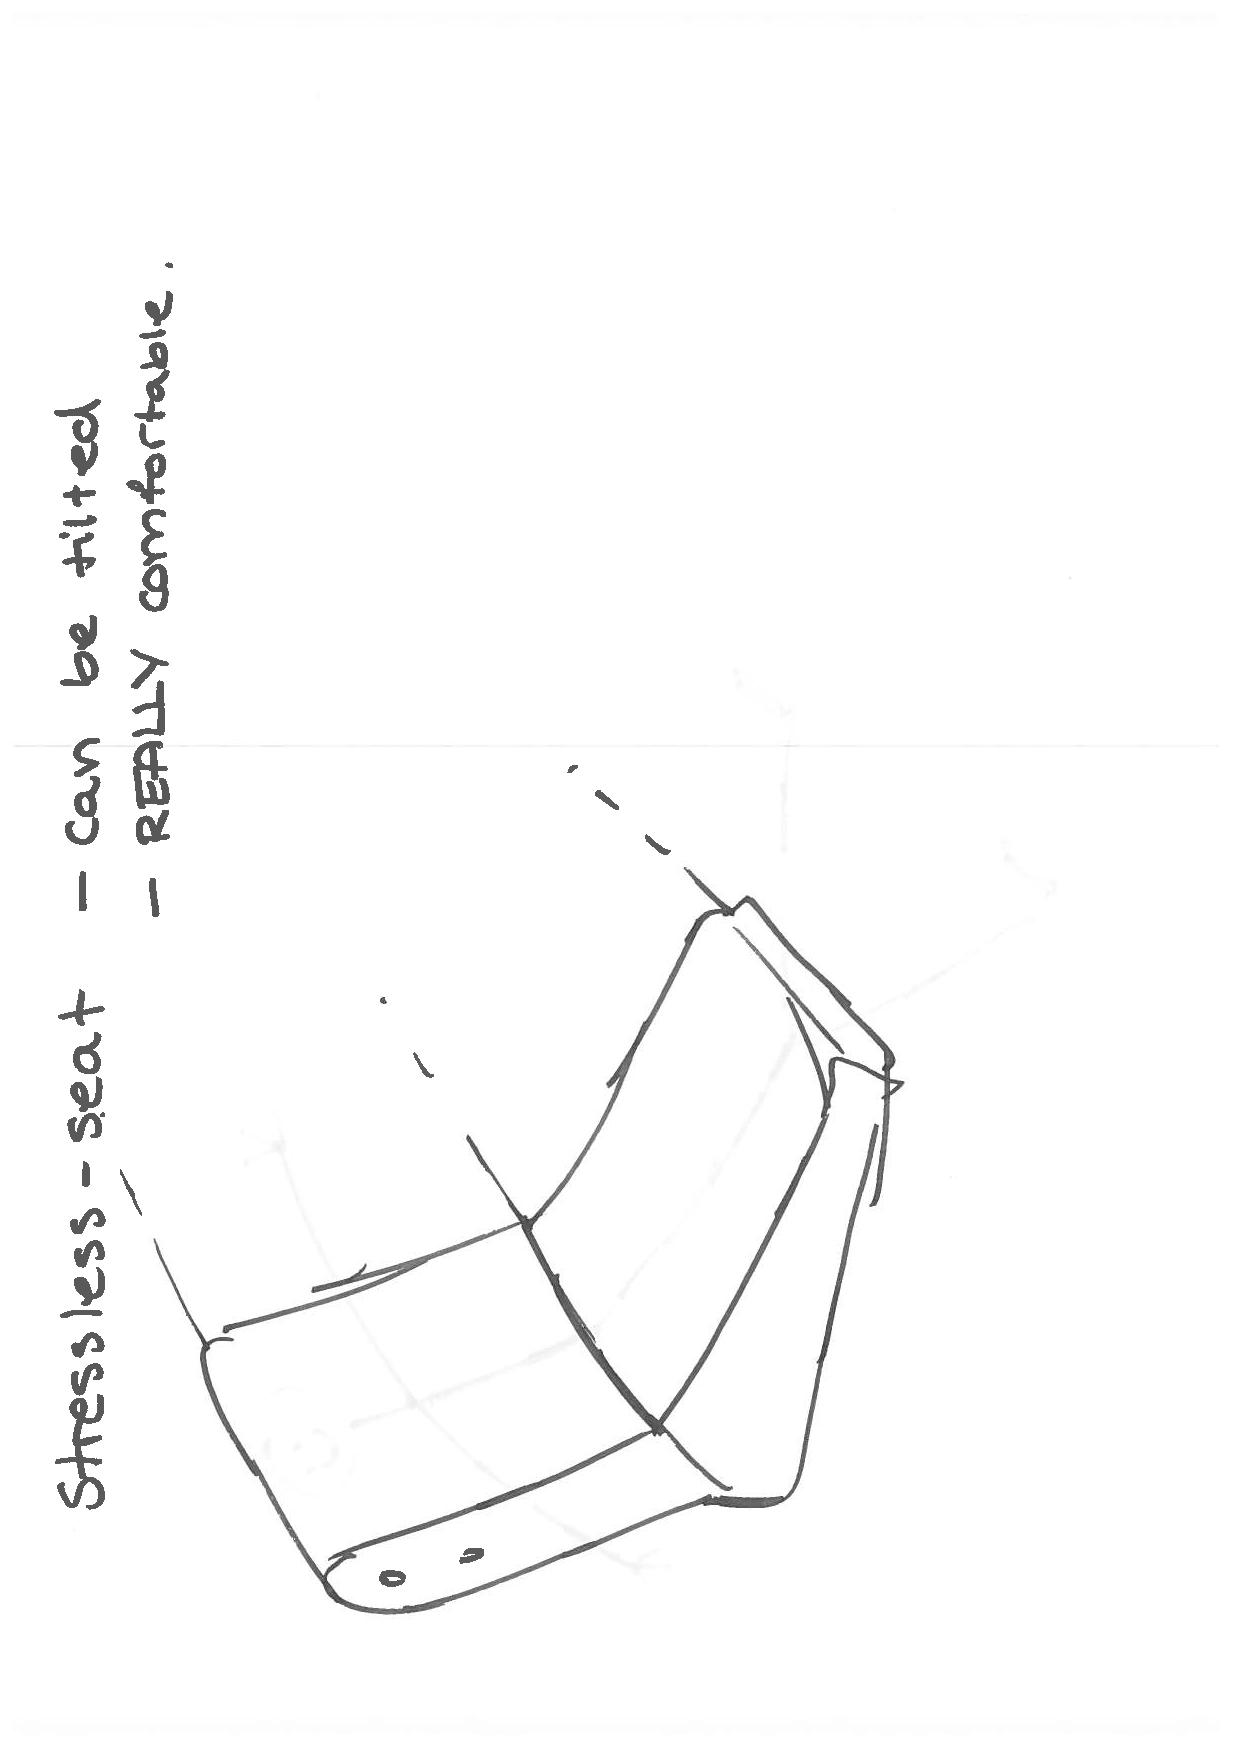 Stressless-seat - can be tilted
- REALLY comfortable.